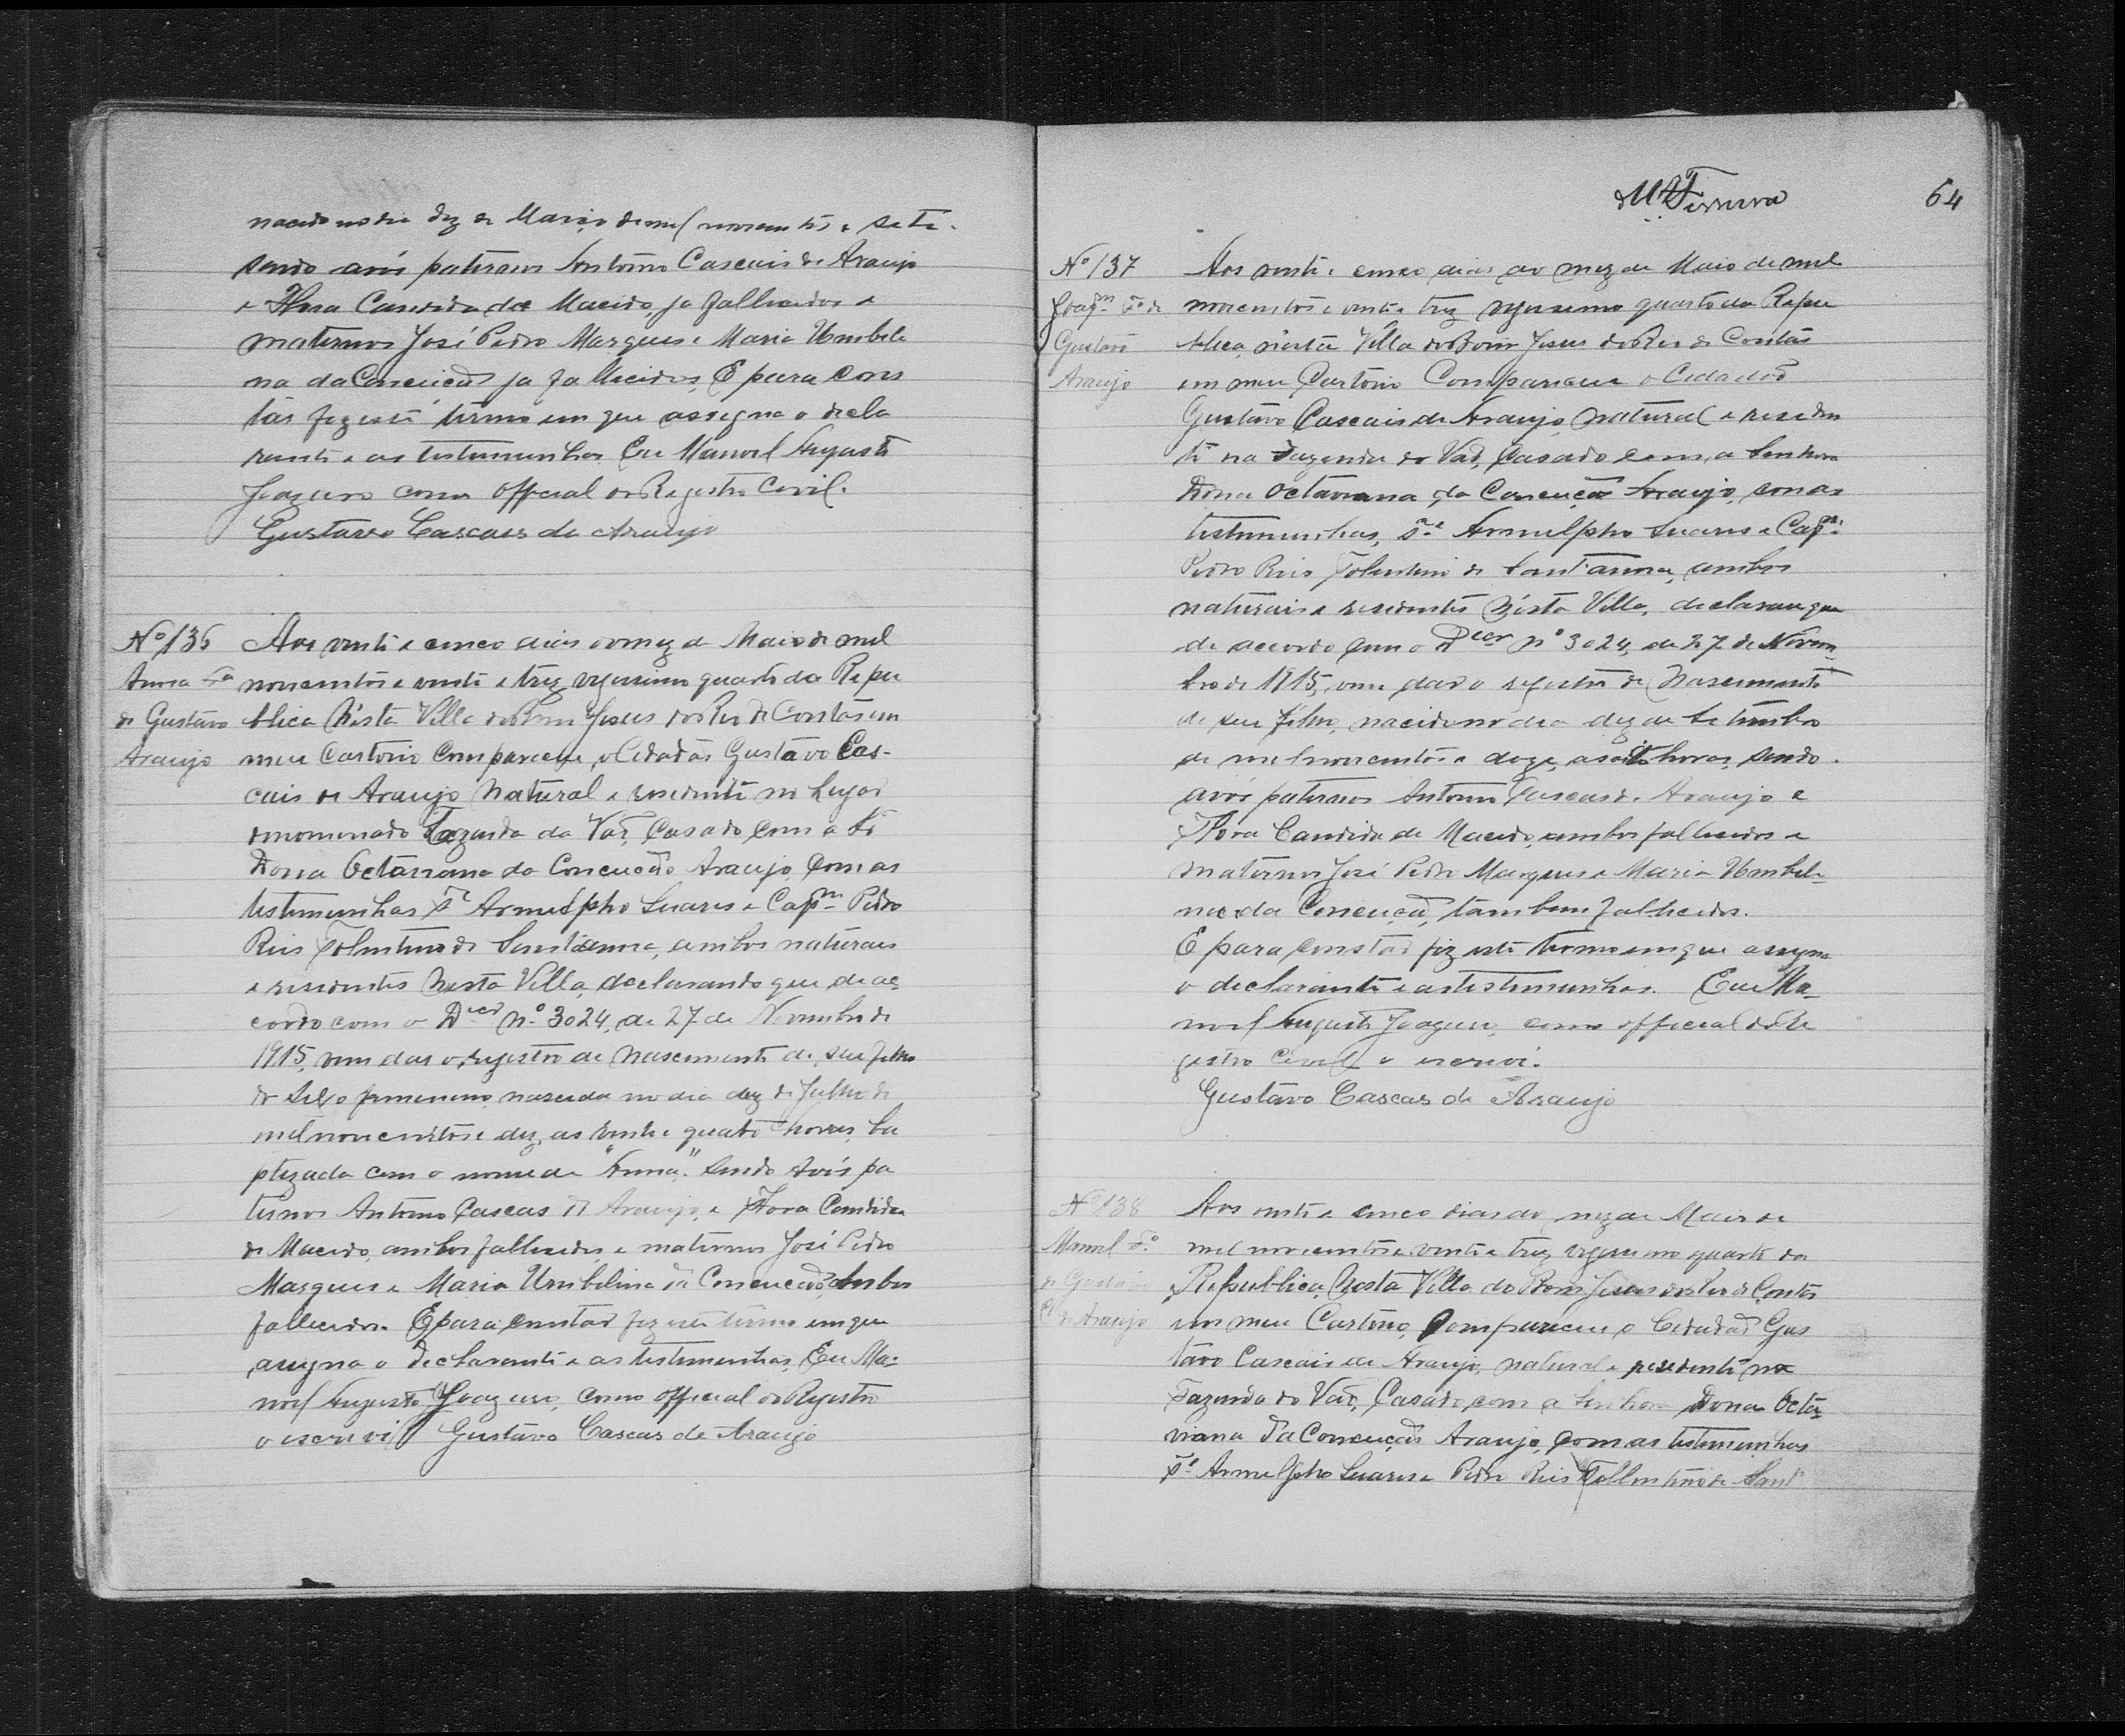 nacido no dia dez de Março de mil novecentos e sete.
sendo avós paternos Antonio Cascais de Araujo
e Flora Candida de Macedo, ja fallecidos e
maternos José Pedro Marques e Maria Umbeli
na da Conceição ja fallecidos. E para cons
tar fiz este termo em que assigna o decla
rante e as testemunhas. Eu Manoel Augusto
como Official do Registro Civil.
Gustavo Cascaes de Araujo
Nº 136
Anna Fª
de Gustavo
Araujo
Aos vinte e cinco dias do mez de Maio de mil
novecentos e vinte e trez vigessimo quarto da Repu
blica Nésta Villa do Bom Jesus do Rio de Contas em
meu Cartorio Compareceu o Cidadão Gustavo Cas-
cais de Araujo Natural e residente no lugar
denomenado Fazenda do Váo, Casado com a
Dona Octaviana da Conceição Araujo, com as
testemunhas Sr. Arnulpho Soares e Capm Pedro
Reis Tolentino de Sant'anna, ambos naturaes
e residentes Nesta Villa, declarando que de ac-
cordo com o Decr nº 3024, de 27 de Novembro de
1915, vem dar o registro de nascimento de seu filho
do sexo femenino, nascida no dia dez de Julho de
mil novecentos e dez, as vinte e quatro horas, ba
ptizada com o nome de "Anna". Sendo Avós pa
ternos Antonio Cascaes de Araujo, e Flora Candida
de Macedo, ambos fallecidos, e maternos José Pedro
Marques e Maria Umbelina da Conceição, Ambos
fallecidos. E para constar fiz este termo em que
assigna o declarante e as testemunhas, Eu Ma-
noel Augusto como official do Registro
o escrevi Gustavo Cascaes de Araujo
Ferreira
64
Nº 137
Joaqm Fº de
Gustavo
Araujo
Aos vinte e cinco dias do mez de Maio de mil
novecentos e vinte e trez vigessimo quarto da Repu
blica, nésta Villa do Bom Jesus do Rio de Contas
em meu Cartorio Compareceu o Cidadão
Gustavo Cascais de Araujo, natural e residen
te na Fazenda do Váo, Casado com a Senhora
Dona Octaviana da Conceição Araujo, com as
testemunhas, Sr. Arnulpho Soares e Capm
Pedro Reis Tolentino de Sant'anna, ambos
naturais e residentes Nésta Villa, declarou que
de accordo com o Decr nº 3024, de 27 de Novem-
bro de 1915, vem dar o registro de Nascimento
de seu filho, nacido no dia dez de Setembro
de mil novecentos e doze, as oito horas, sendo
avós paternos Antonio Cascaes de Araujo e
Flora Candida de Macedo, ambos fallecidos e
maternos José Pedro Marques e Maria Umbeli-
na da Conceição, tambem fallecidos.
E para constar fiz este termo em que assigna
o declarante e as testemunhas. Eu Ma-
noel Augusto como official do Re
gistro Civil o escrevi.
Gustavo Cascaes de Araujo
Nº 138
Manoel Fº
de Gustavo
C de Araujo
Aos vinte e cinco dias do mez de Maio de
mil novecentos e vinte e trez vigessimo quarto da
Republica, Nesta Villa do Bom Jesus do Rio de Contas
em meu Cartorio, Compareceu o Cidadão Gus
tavo Cascais de Araujo, natural e residente na
Fazenda do Váo, Casado com a Senhora Dona Octa-
viana da Conceição Araujo, com as testemunhas
Sr. Arnulpho Soares e Pedro Reis Tollentino de Sant'